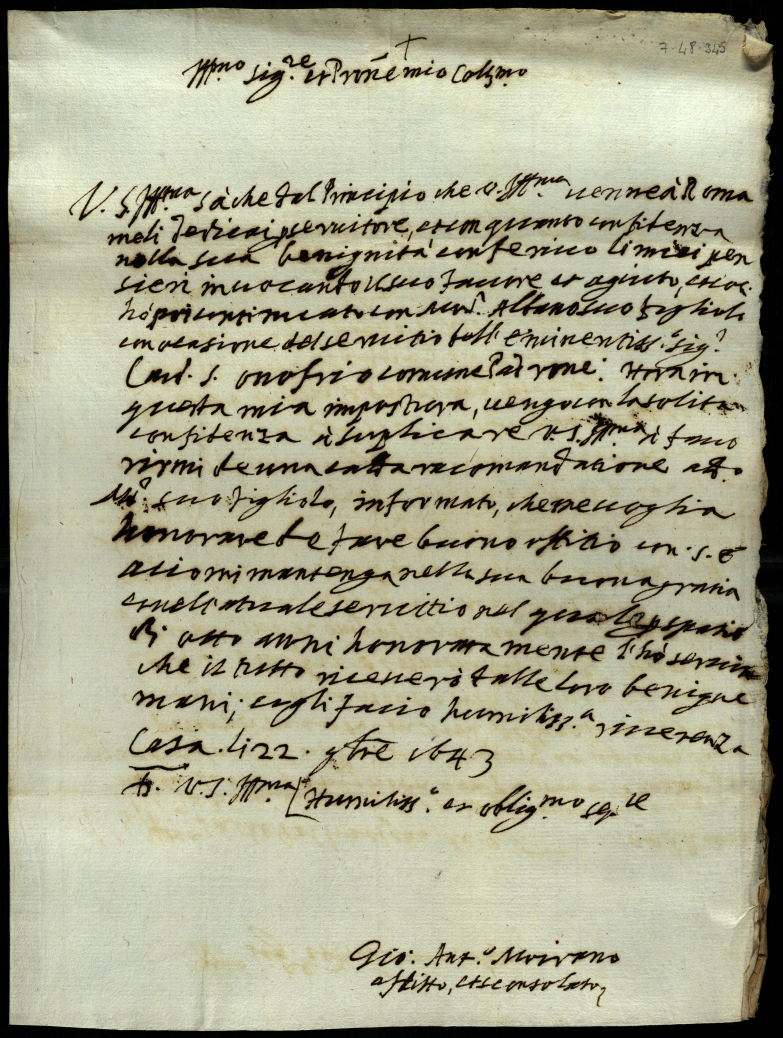 7-48-345
Ill.mo Sig.re et Pron̄e mio Coll.mo
V. S. Ill.ma sà che dal Principio che v. Ill.ma venne à Roma
meli dedicai p servitore, et con quanto confidenza
nella sua benignità conferisco li miei pen
sieri invocando il suo favore et agiuto, et
hò poi continuato con Mons.r Albano suo figliolo
con ocasione del servitio dell'Eminentiss.o Sig.r
Card. S. Onofrio comune Padrone: Hora in
questa mia impostura, vengo con la solita
confidenza à suplicare V. S. Ill.ma à favo
rirmi de una calda racomandatione
suo figliolo, informato, che me voglia
honorare de fare buono offitio con S. E
aciò mi mantenga nella sua buona gratia
e nell'atuale servitio nel quale p spatio
di otto anni honoratamente l'hò servito
che il tutto riceverò dalle loro benigne
mani; e gli facio humiliss.a riverenza
Casa li 22 9bre 1643
D. V. S. Ill.ma
Humiliss.o et oblig.mo se.re
Gio: Ant.o Moirano
aflitto, et sconsolato